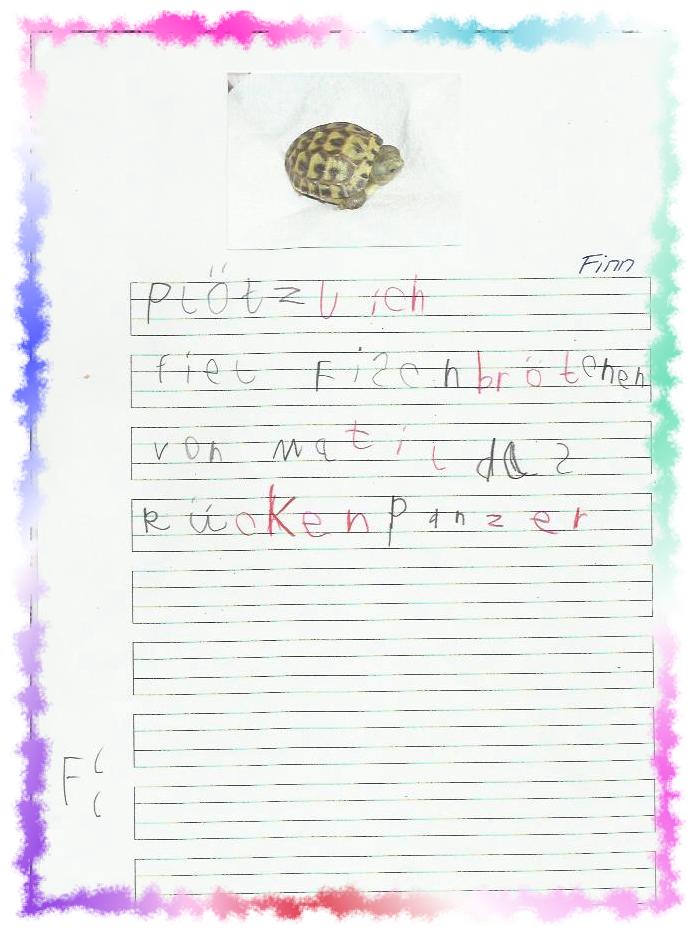 Finn
plötzlich
fiel Fischbrötchen
von Matildas
Rückenpanzer